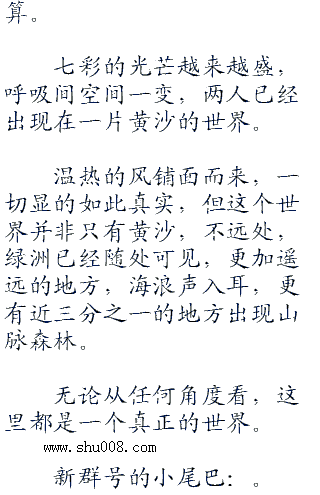 算。
七彩的光芒越来越盛，
呼吸间空间一变，两人已经
出现在一片黄沙的世界。
温热的风铺面而来，一
切显的如此真实，但这个世
界并非只有黄沙，不远处，
绿洲已经随处可见，更加遥
远的地方，海浪声入耳，更
有近三分之一的地方出现山
脉森林。
无论从任何角度看，这
里都是一个真正的世界。
www.shu008.com
新群号的小尾巴：。